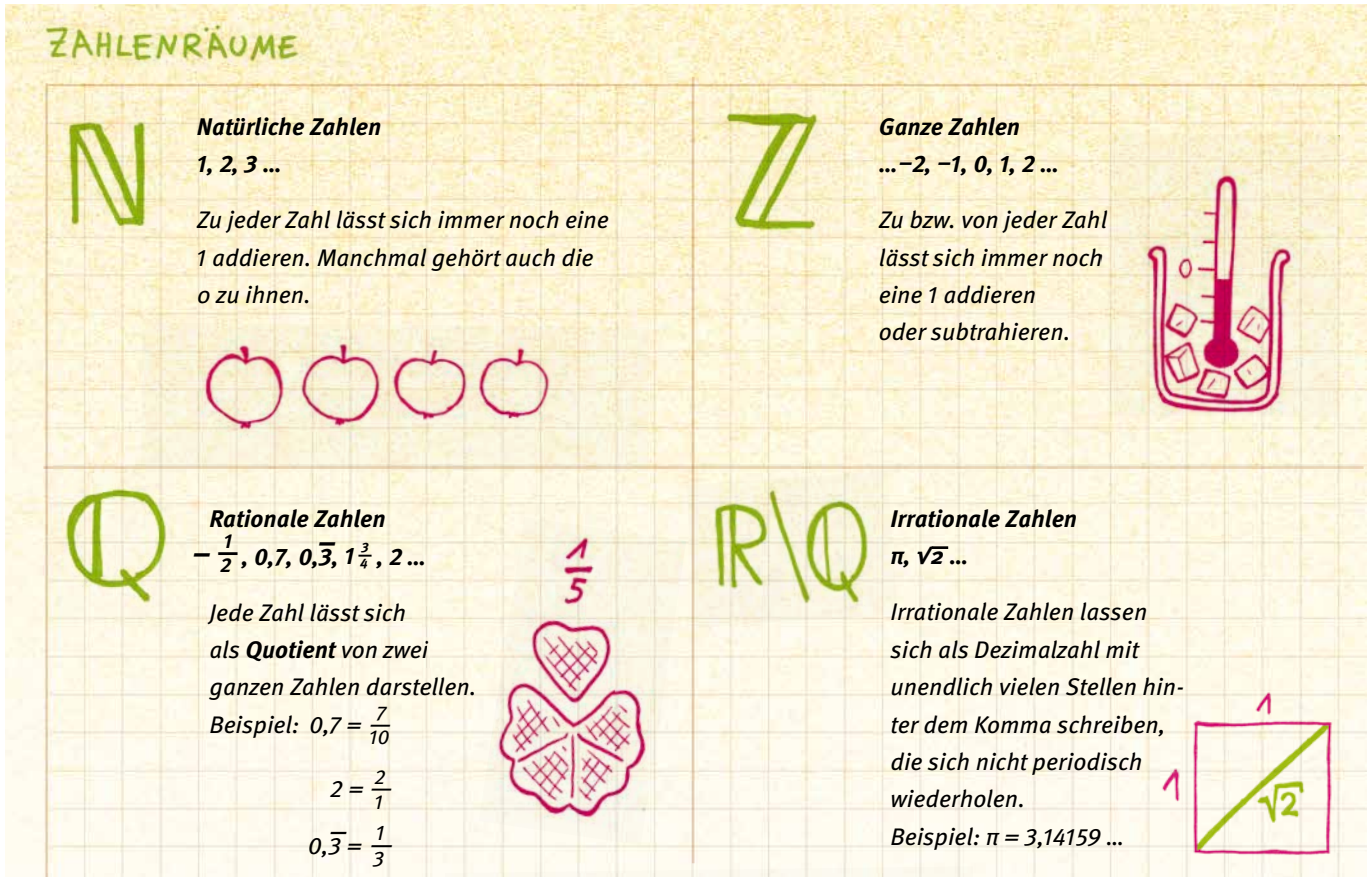 ZAHLENRÄUME
ℕ
Natürliche Zahlen
1, 2, 3 ...
Zu jeder Zahl lässt sich immer noch eine
1 addieren. Manchmal gehört auch die
0 zu ihnen.
ℤ
Ganze Zahlen
...−2, −1, 0, 1, 2 ...
Zu bzw. von jeder Zahl
lässt sich immer noch
eine 1 addieren
oder subtrahieren.
0
ℚ
Rationale Zahlen
− 1/2 , 0,7, 0,3̅, 1 3/4 , 2 ...
Jede Zahl lässt sich
als Quotient von zwei
ganzen Zahlen darstellen.
Beispiel: 0,7 = 7/10
2 = 2/1
0,3̅ = 1/3
1/5
ℝ\ℚ
Irrationale Zahlen
π, √2 ...
Irrationale Zahlen lassen
sich als Dezimalzahl mit
unendlich vielen Stellen hin-
ter dem Komma schreiben,
die sich nicht periodisch
wiederholen.
Beispiel: π = 3,14159 ...
1
1
√2